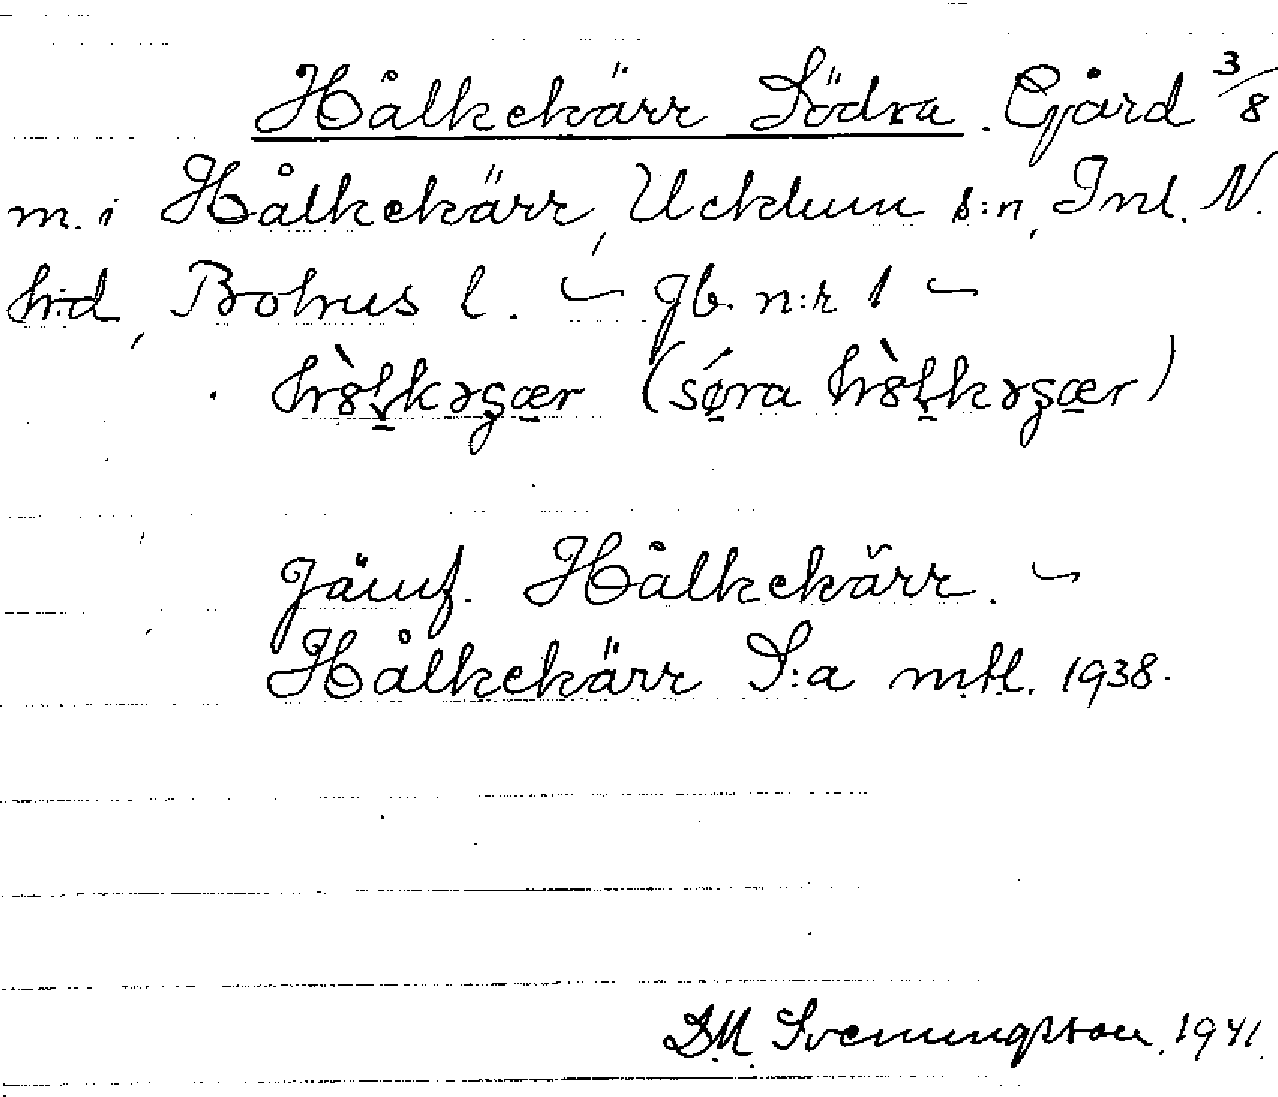 Hålkekärr Södra. Gård 3/8
m. i Hålkekärr, Ucklum s:n, Inl. N.
h:d, Bohus l. — gb. n:r 1 —
(søra
Jämf. Hålkekärr. —
Hålkekärr S:a mtl. 1938.
D.M. Svenningsson. 1941.